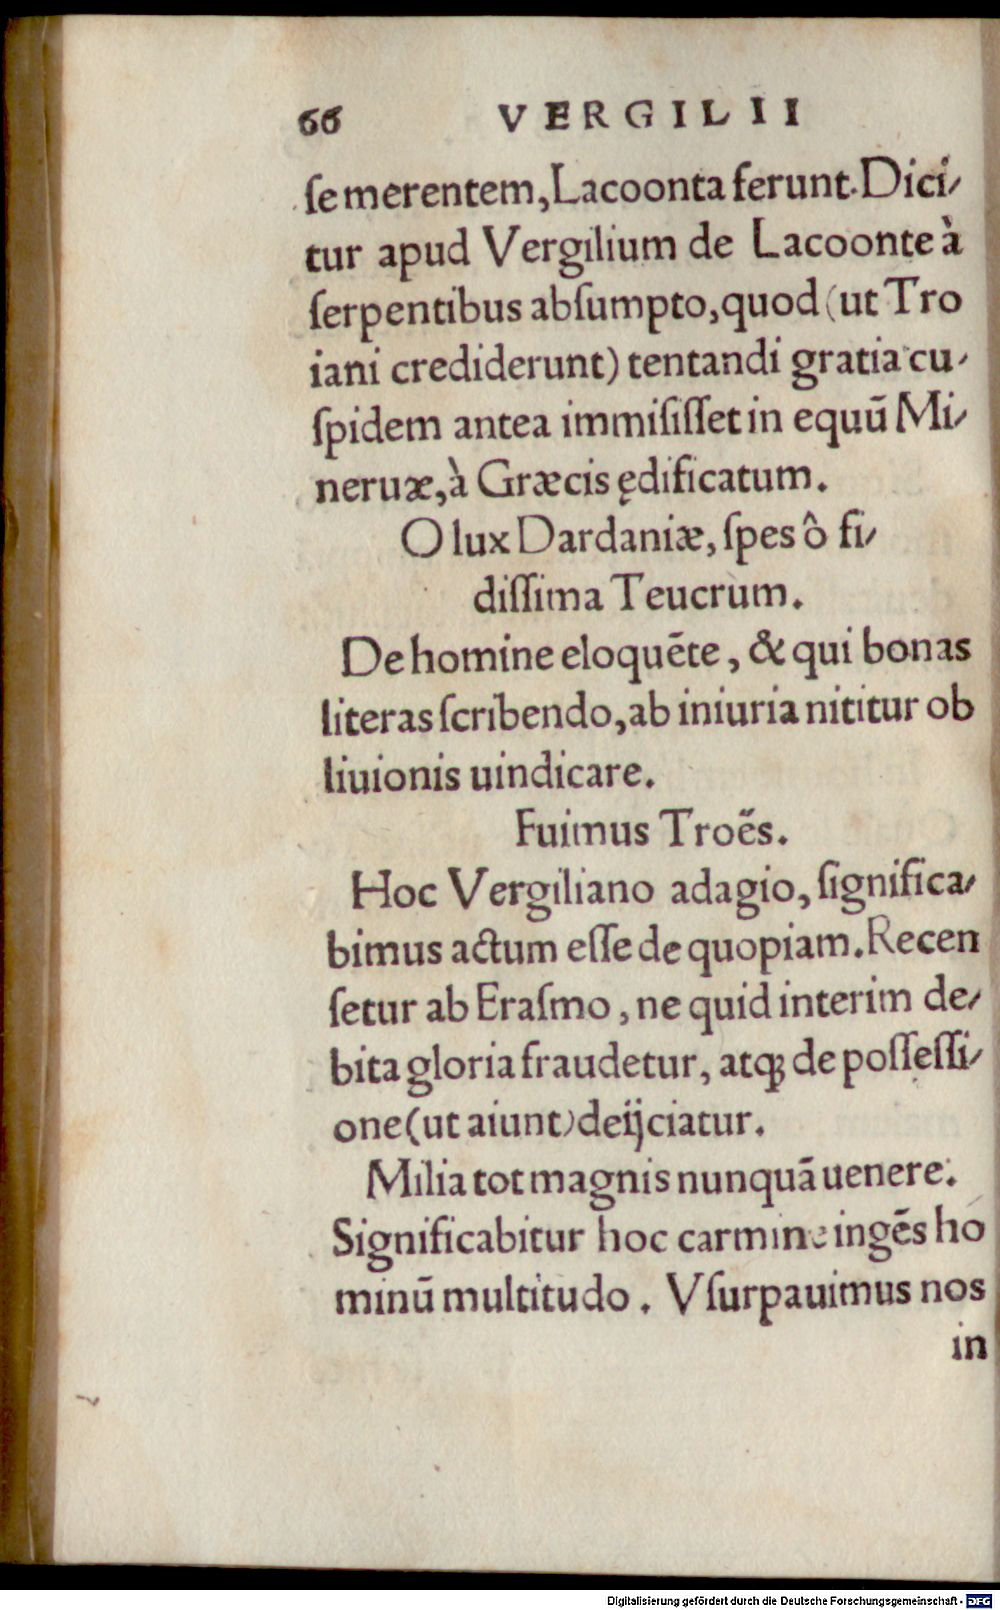 66 VERGILII
ſe merentem, Lacoonta ferunt. Dici⸗
tur apud Vergilium de Lacoonte à
ſerpentibus abſumpto, quod (ut Tro
iani crediderunt) tentandi gratia cu⸗
ſpidem antea immiſiſſet in equū Mi⸗
neruæ, à Græcis ędificatum.
O lux Dardaniæ, ſpes ô fi⸗
diſſima Teucrum.
De homine eloquēte, & qui bonas
literas ſcribendo, ab iniuria nititur ob
liuionis uindicare.
Fuimus Troës.
Hoc Vergiliano adagio, ſignifica⸗
bimus actum eſſe de quopiam. Recen
ſetur ab Eraſmo, ne quid interim de⸗
bita gloria fraudetur, atq; de poſſeſſi⸗
one (ut aiunt) deijciatur.
Milia tot magnis nunquā uenere.
Significabitur hoc carmine ingēs ho
minū multitudo. Vſurpauimus nos
in
Digitalisierung gefördert durch die Deutsche Forschungsgemeinschaft - DFG